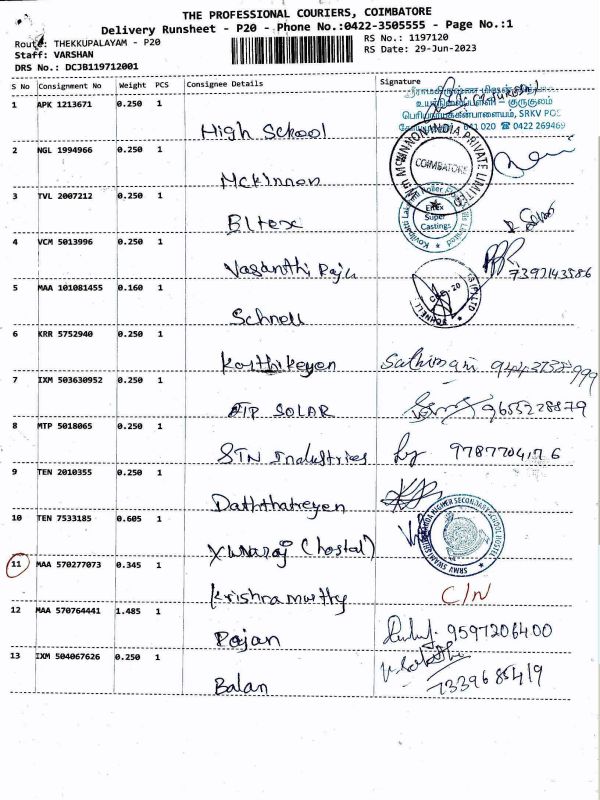 THE PROFESSIONAL COURIERS, COIMBATORE
Delivery Runsheet - P20 - Phone No.:0422-3505555 - Page No.:1
Route: THEKKUPALAYAM - P20
RS No.: 1197120
Staff: VARSHAN
RS Date: 29-Jun-2023
DRS No.: DCJB119712001
S No Consignment No Weight PCS Consignee Details Signature
1 APK 1213671 0.250 1
உயர்நிலைப்பள்ளி - குருகுலம்
SRKV POST
641 020 ☎ 0422 269469
High School
2 NGL 1994966 0.250 1
COIMBATORE
Mckinnon
3 TVL 2007212 0.250 1
Eltex
Super
Castings
Eltex
4 VCM 5013996 0.250 1
Vasanthi Raju
7397143586
5 MAA 101081455 0.160 1
Schnell
6 KRR 5752940 0.250 1
Karthikeyen
7 IXM 503630952 0.250 1
SOLAR 9655228879
8 MTP 5018065 0.250 1
STN Industries 9787704176
9 TEN 2010355 0.250 1
Daththatreyen
10 TEN 7533185 0.605 1
Yuvaraj (hostal)
11 MAA 570277073 0.345 1
Krishnamurthy C/N
12 MAA 570764441 1.485 1
Rajan 9597206400
13 IXM 504067626 0.250 1
Balan 7339685419